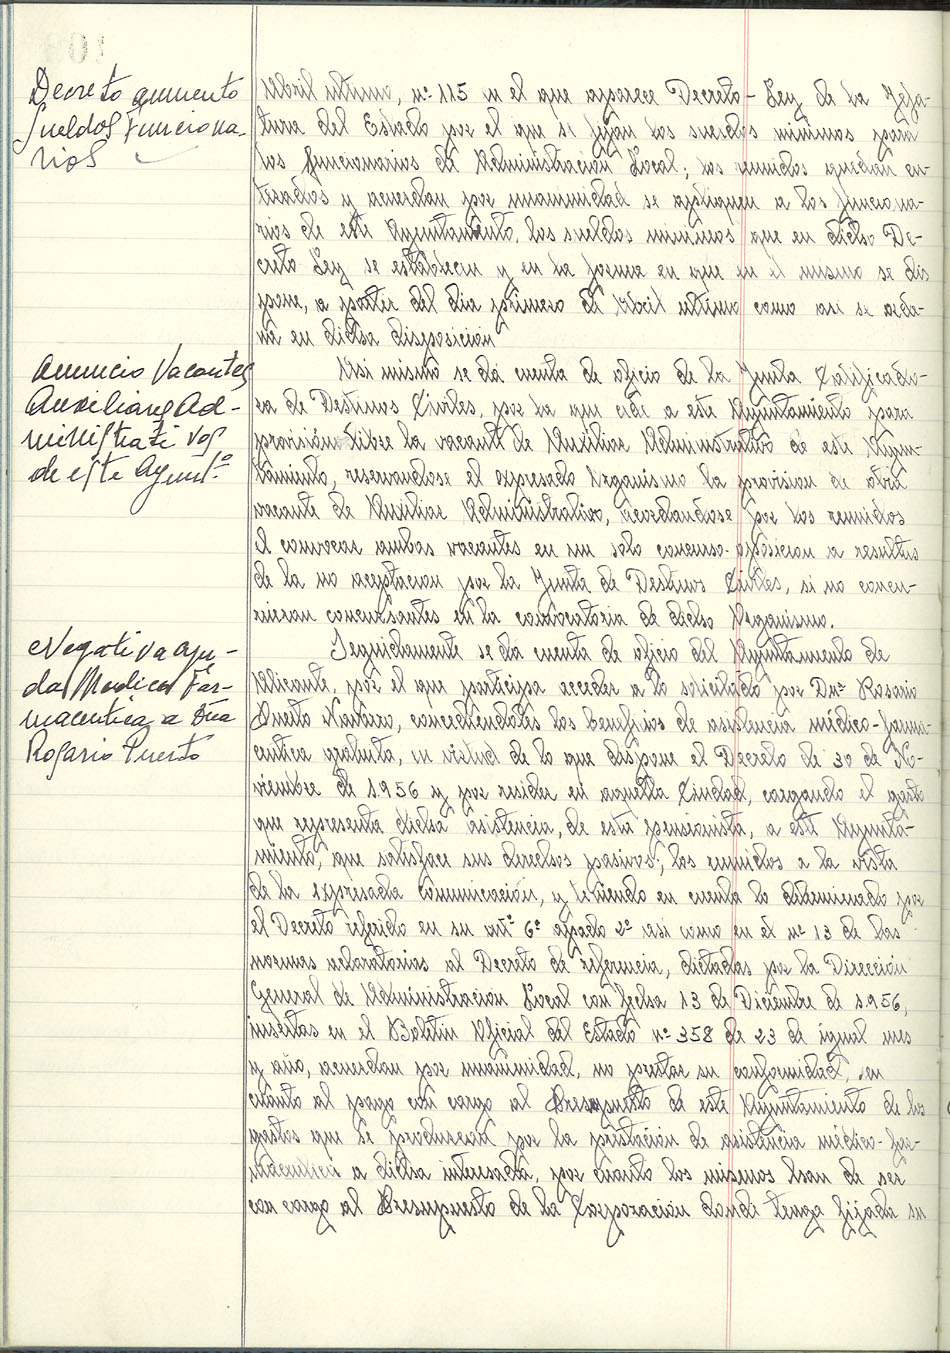 Decreto aumento
sueldos Funciona-
rios
Abril ultimo, nº 115 en el que aparece Decreto-Ley de la Jefa-
tura del Estado por el que se fijan los sueldos minimos para
los funcionarios de Administración Local; los reunidos quedan en-
terados y acuerdan por unanimidad se apliquen a los funciona-
rios de este Ayuntamiento, los sueldos minimos que en dicho De-
creto Ley se establecen y en la forma en que en el mismo se dis
pone, a partir del dia primero de Abril ultimo como asi se orde-
na en dicha disposición
Anuncio Vacantes
Auxiliares Ad-
ministrativos
de este Ayunt.º
Asi mismo se dá cuenta de oficio de la Junta Calificado-
ra de Destinos Civiles, por la que cede a este Ayuntamiento para
provisión libre la vacante de Auxiliar Administrativo de este Ayun-
tamiento, reservandose el expresado Organismo la provision de otra
vacante de Auxiliar Administrativo, acordandose por los reunidos
el convocar ambas vacantes en un solo concurso-oposicion a resultas
de la no aceptacion por la Junta de Destinos Civiles, si no concu-
rrieran concursantes en la convocatoria de dicho Organismo.
Negativa ayu-
da Medico Far-
maceutica a Dña
Rosario Puerto
Seguidamente se dá cuenta de oficio del Ayuntamiento de
Alicante, por el que participa acceder a lo solicitado por Dnª Rosario
Puerto Navarro, concediendoles los beneficios de asistencia médico-farma-
ceutica gratuita, en virtud de lo que dispone el Decreto de 30 de No-
viembre de 1.956 y por residir en aquella Ciudad, cargando el gasto
que representa dicha asistencia, de esta pensionista, a este Ayunta-
miento, que satisface sus derechos pasivos; los reunidos a la vista
de la expresada comunicación, y teniendo en cuenta lo determinado por
el Decreto referido en su artº 6º apartado 2º asi como en el nº 13 de las
normas aclaratorias al Decreto de referencia, dictadas por la Dirección
General de Administración Local con fecha 13 de Diciembre de 1.956,
insertas en el Boletin Oficial del Estado nº 358 de 23 de igual mes
y año, acuerdan por unanimidad, no prestar su conformidad, en
cuanto al pago con cargo al Presupuesto de este Ayuntamiento de los
gastos que se produzcan por la prestación de asistencia médico-far-
maceutica a dicha interesada, por cuanto los mismos han de ser
con cargo al Presupuesto de la Corporación donde tenga fijada su